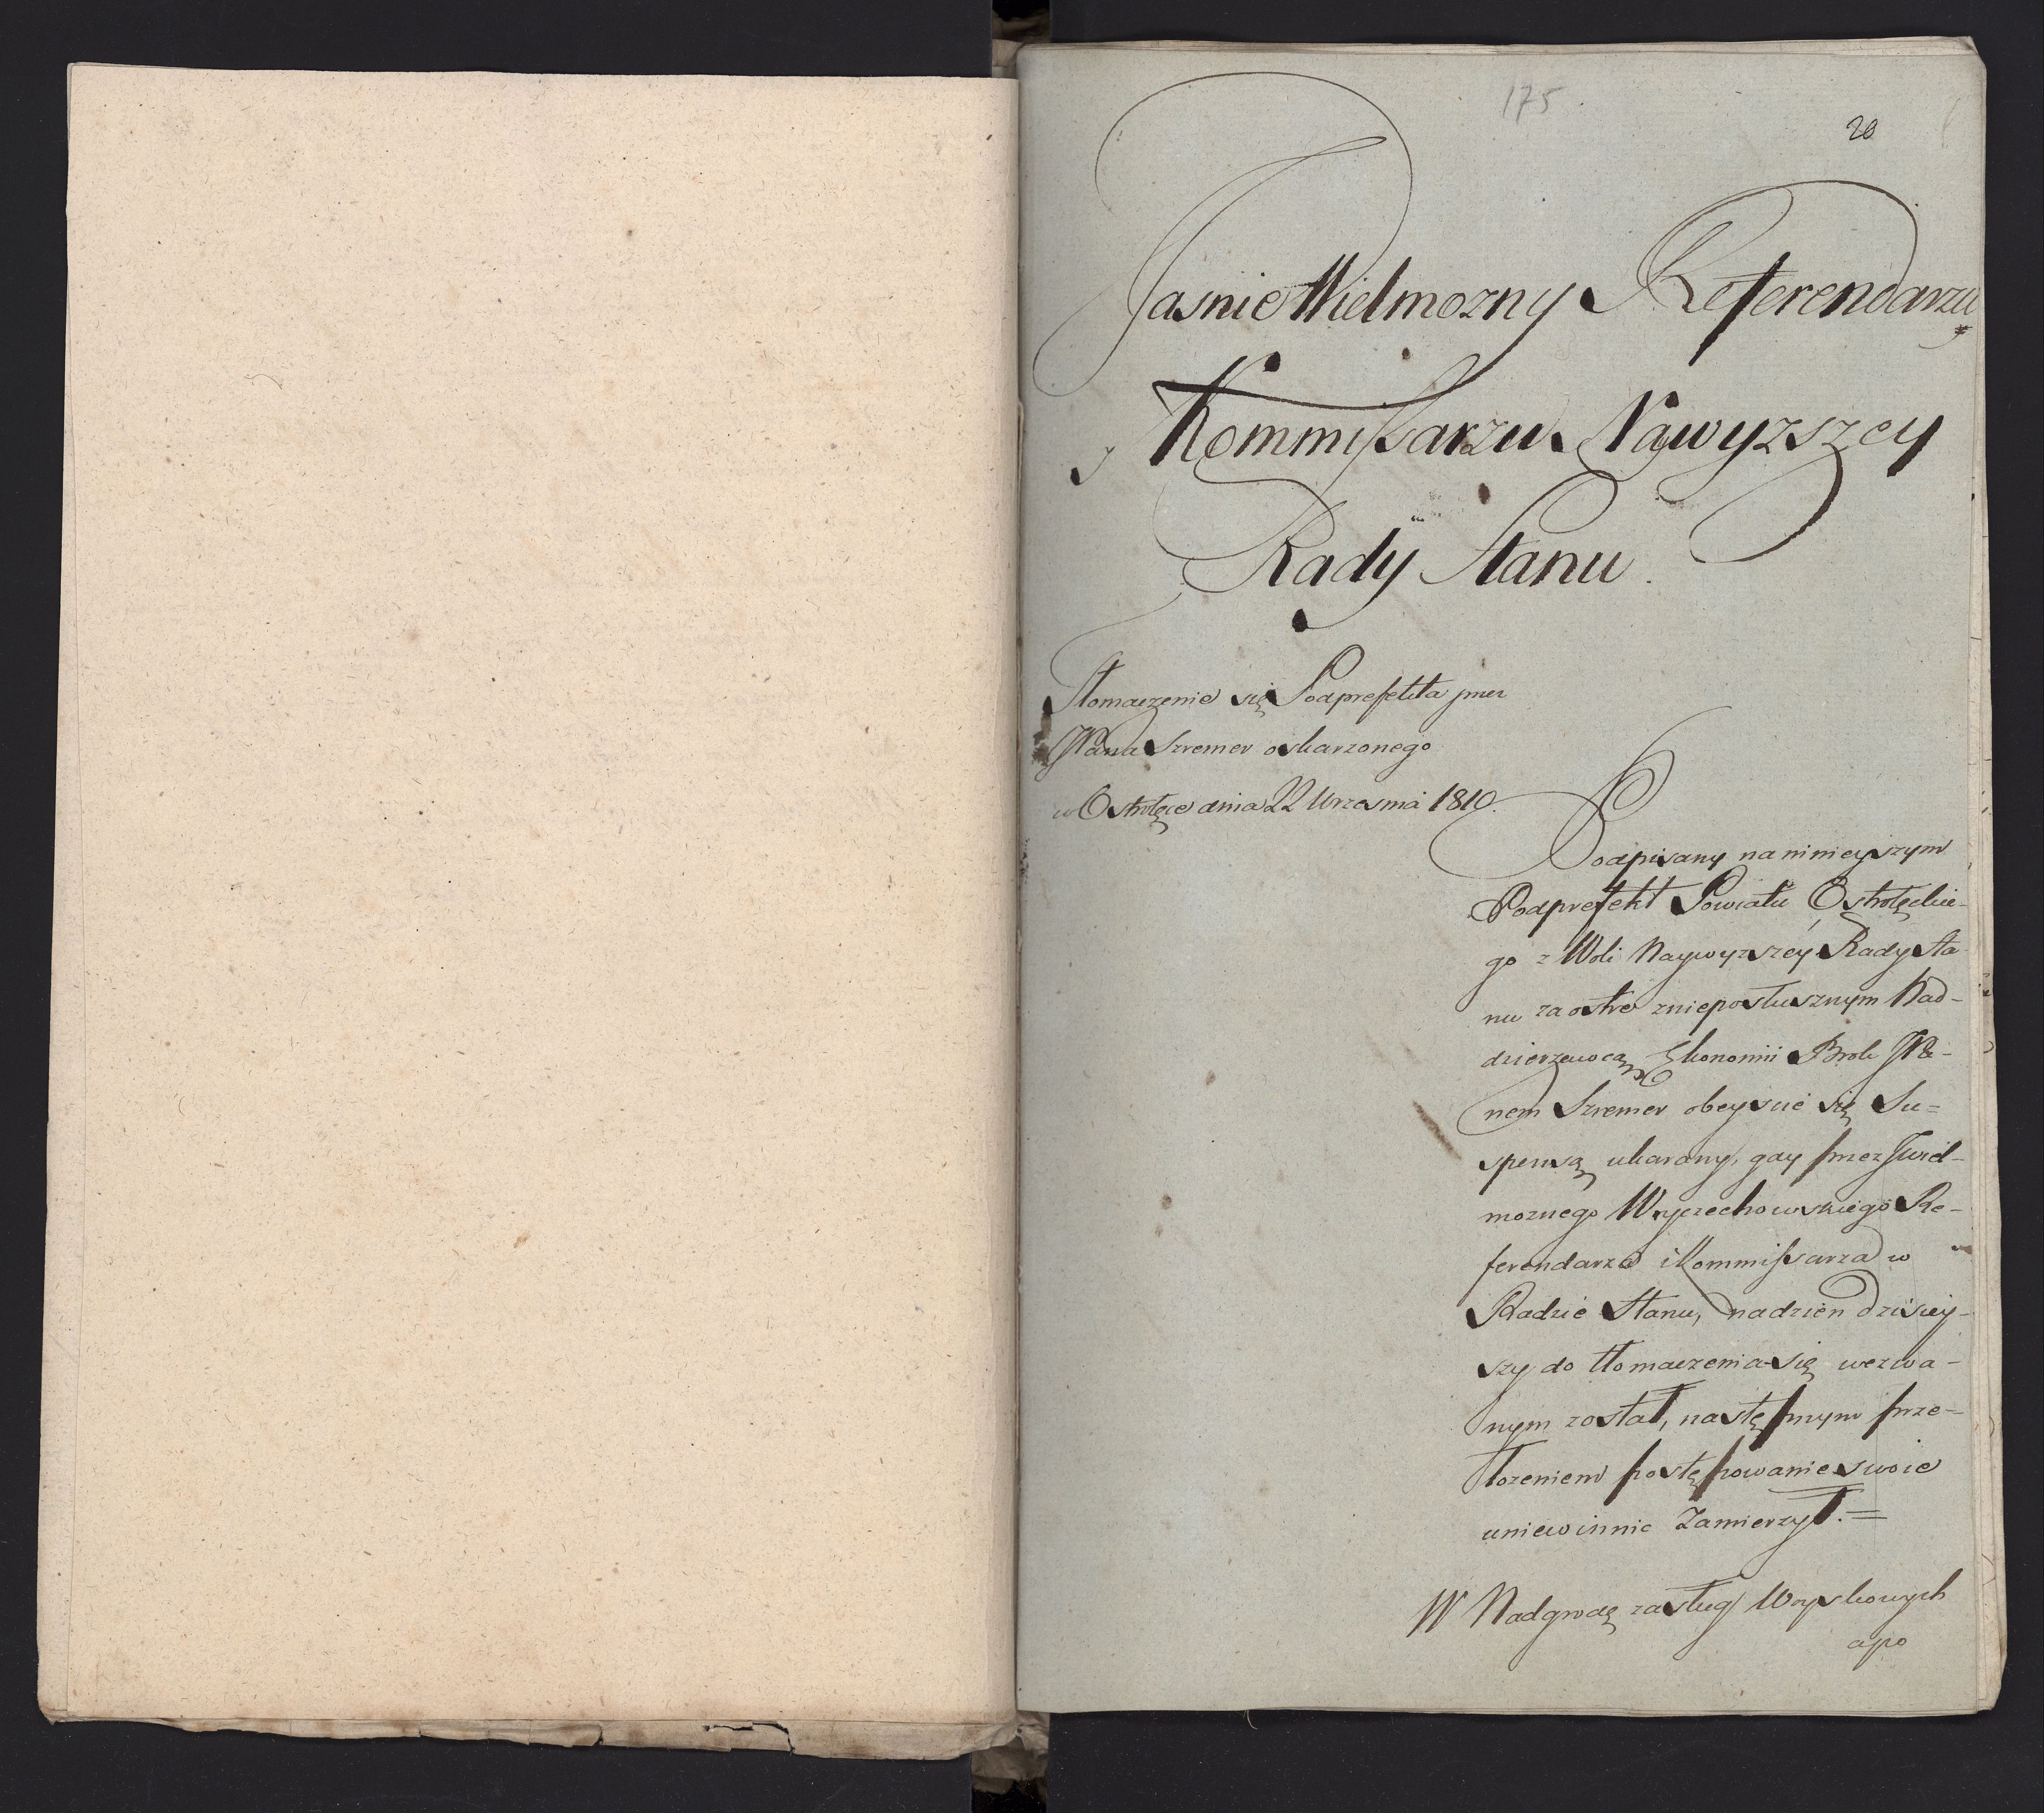 175.
20
Jasnie Wielmozny Referendarzu
y Kommissarzu Naywyzszey
Rady Stanu.
Tłomaczenie się Podprefekta przez
JPana Szremer oskarzonego
w Ostrołęce dnia 22 Wrzesnia 1810.
Podpisany na ninieyszym
Podprefekt Powiatu Ostrołęckie-
go z Woli Naywyzszéy Rady Sta
nu za ostre z nieposłusznym Nad-
dzierzawcą Ekonomii Brok JPa-
nem Szremer obeyscié się Su=
spensą ukarany, gdy przez JWiel-
moznego Woyciechowskiego Re-
ferendarza i Kommissarza w
Radzie Stanu, na dzien dzisiey-
szy do tłomaczenia się wezwa-
nym został, następnym prze-
łozeniem postępowanie swoie
uniewinnic Zamierzył.=
W Nadgrodę zasług Woyskowych
apo